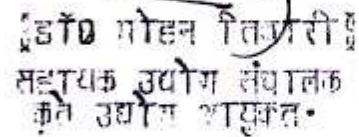 [डॉ0 मोहन तिवारी]
सहायक उद्योग संचालक
कृते उद्योग आयुक्त.